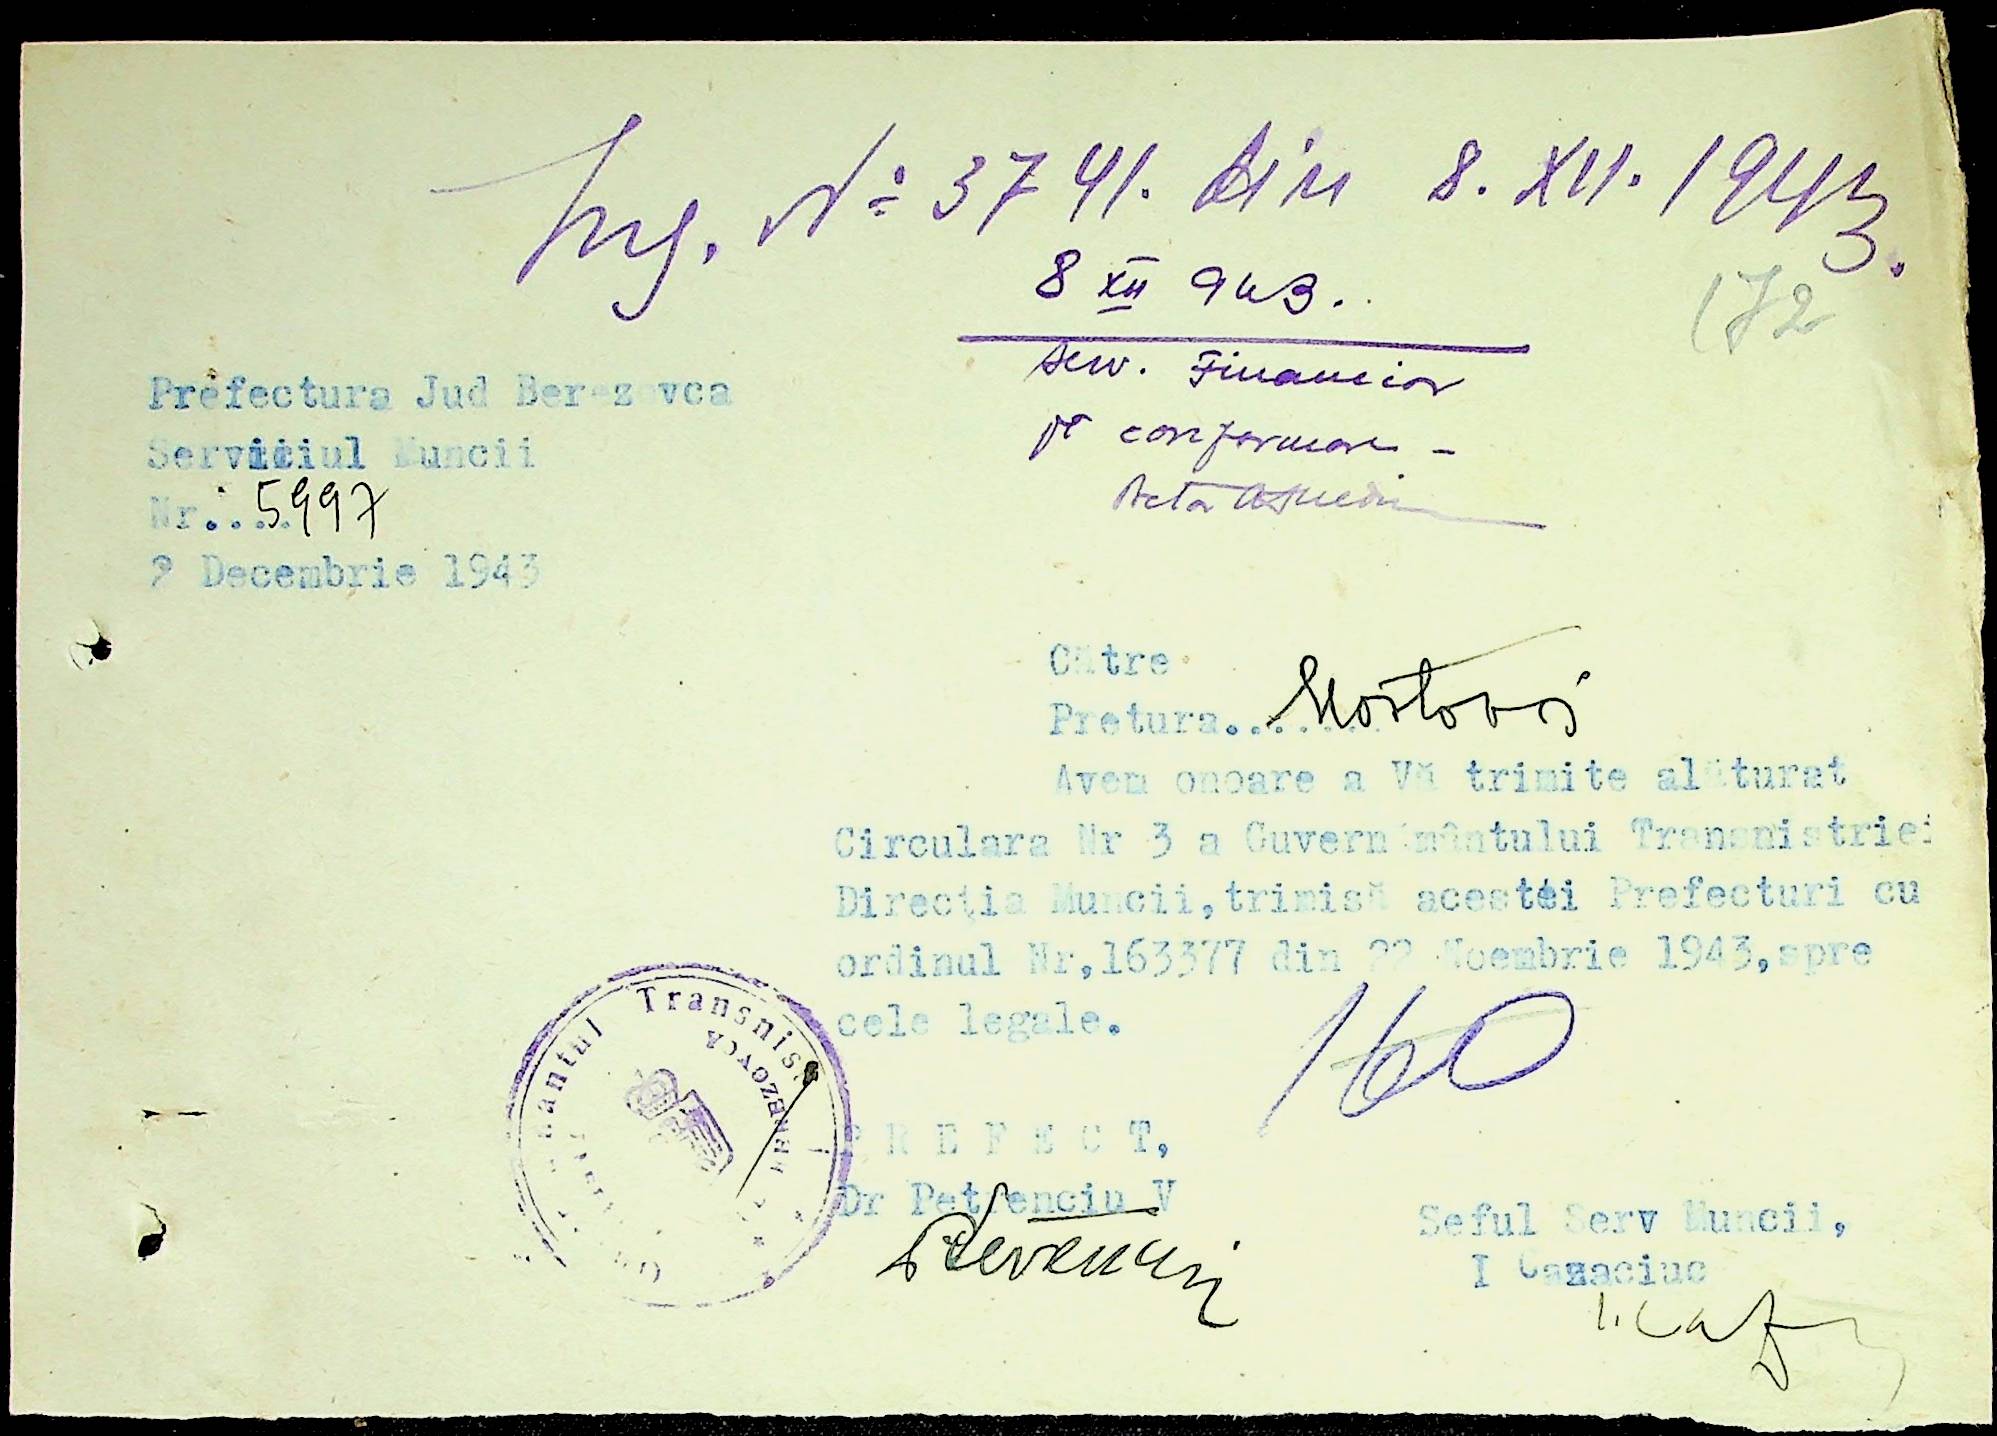 Ing. No 3741. din 8. XII. 1943.
8 XII 943.
172
Serv. Financiar
pt conformare -
Prefectura Jud Berezovca
Serviciul Muncii
Nr..... 5997
2 Decembrie 1943
Către
Pretura....... Mostovoi
Avem onoare a Vă trimite alăturat
Circulara Nr 3 a Guvernământului Transnistriei
Direcţia Muncii,trimisă acestei Prefecturi cu
ordinul Nr,163377 din 22 Noembrie 1943,spre
cele legale.
160
PREFECT,
Dr Petrenciu V
Seful Serv Muncii,
I Cazaciuc
Transnis
BEREZOVCA